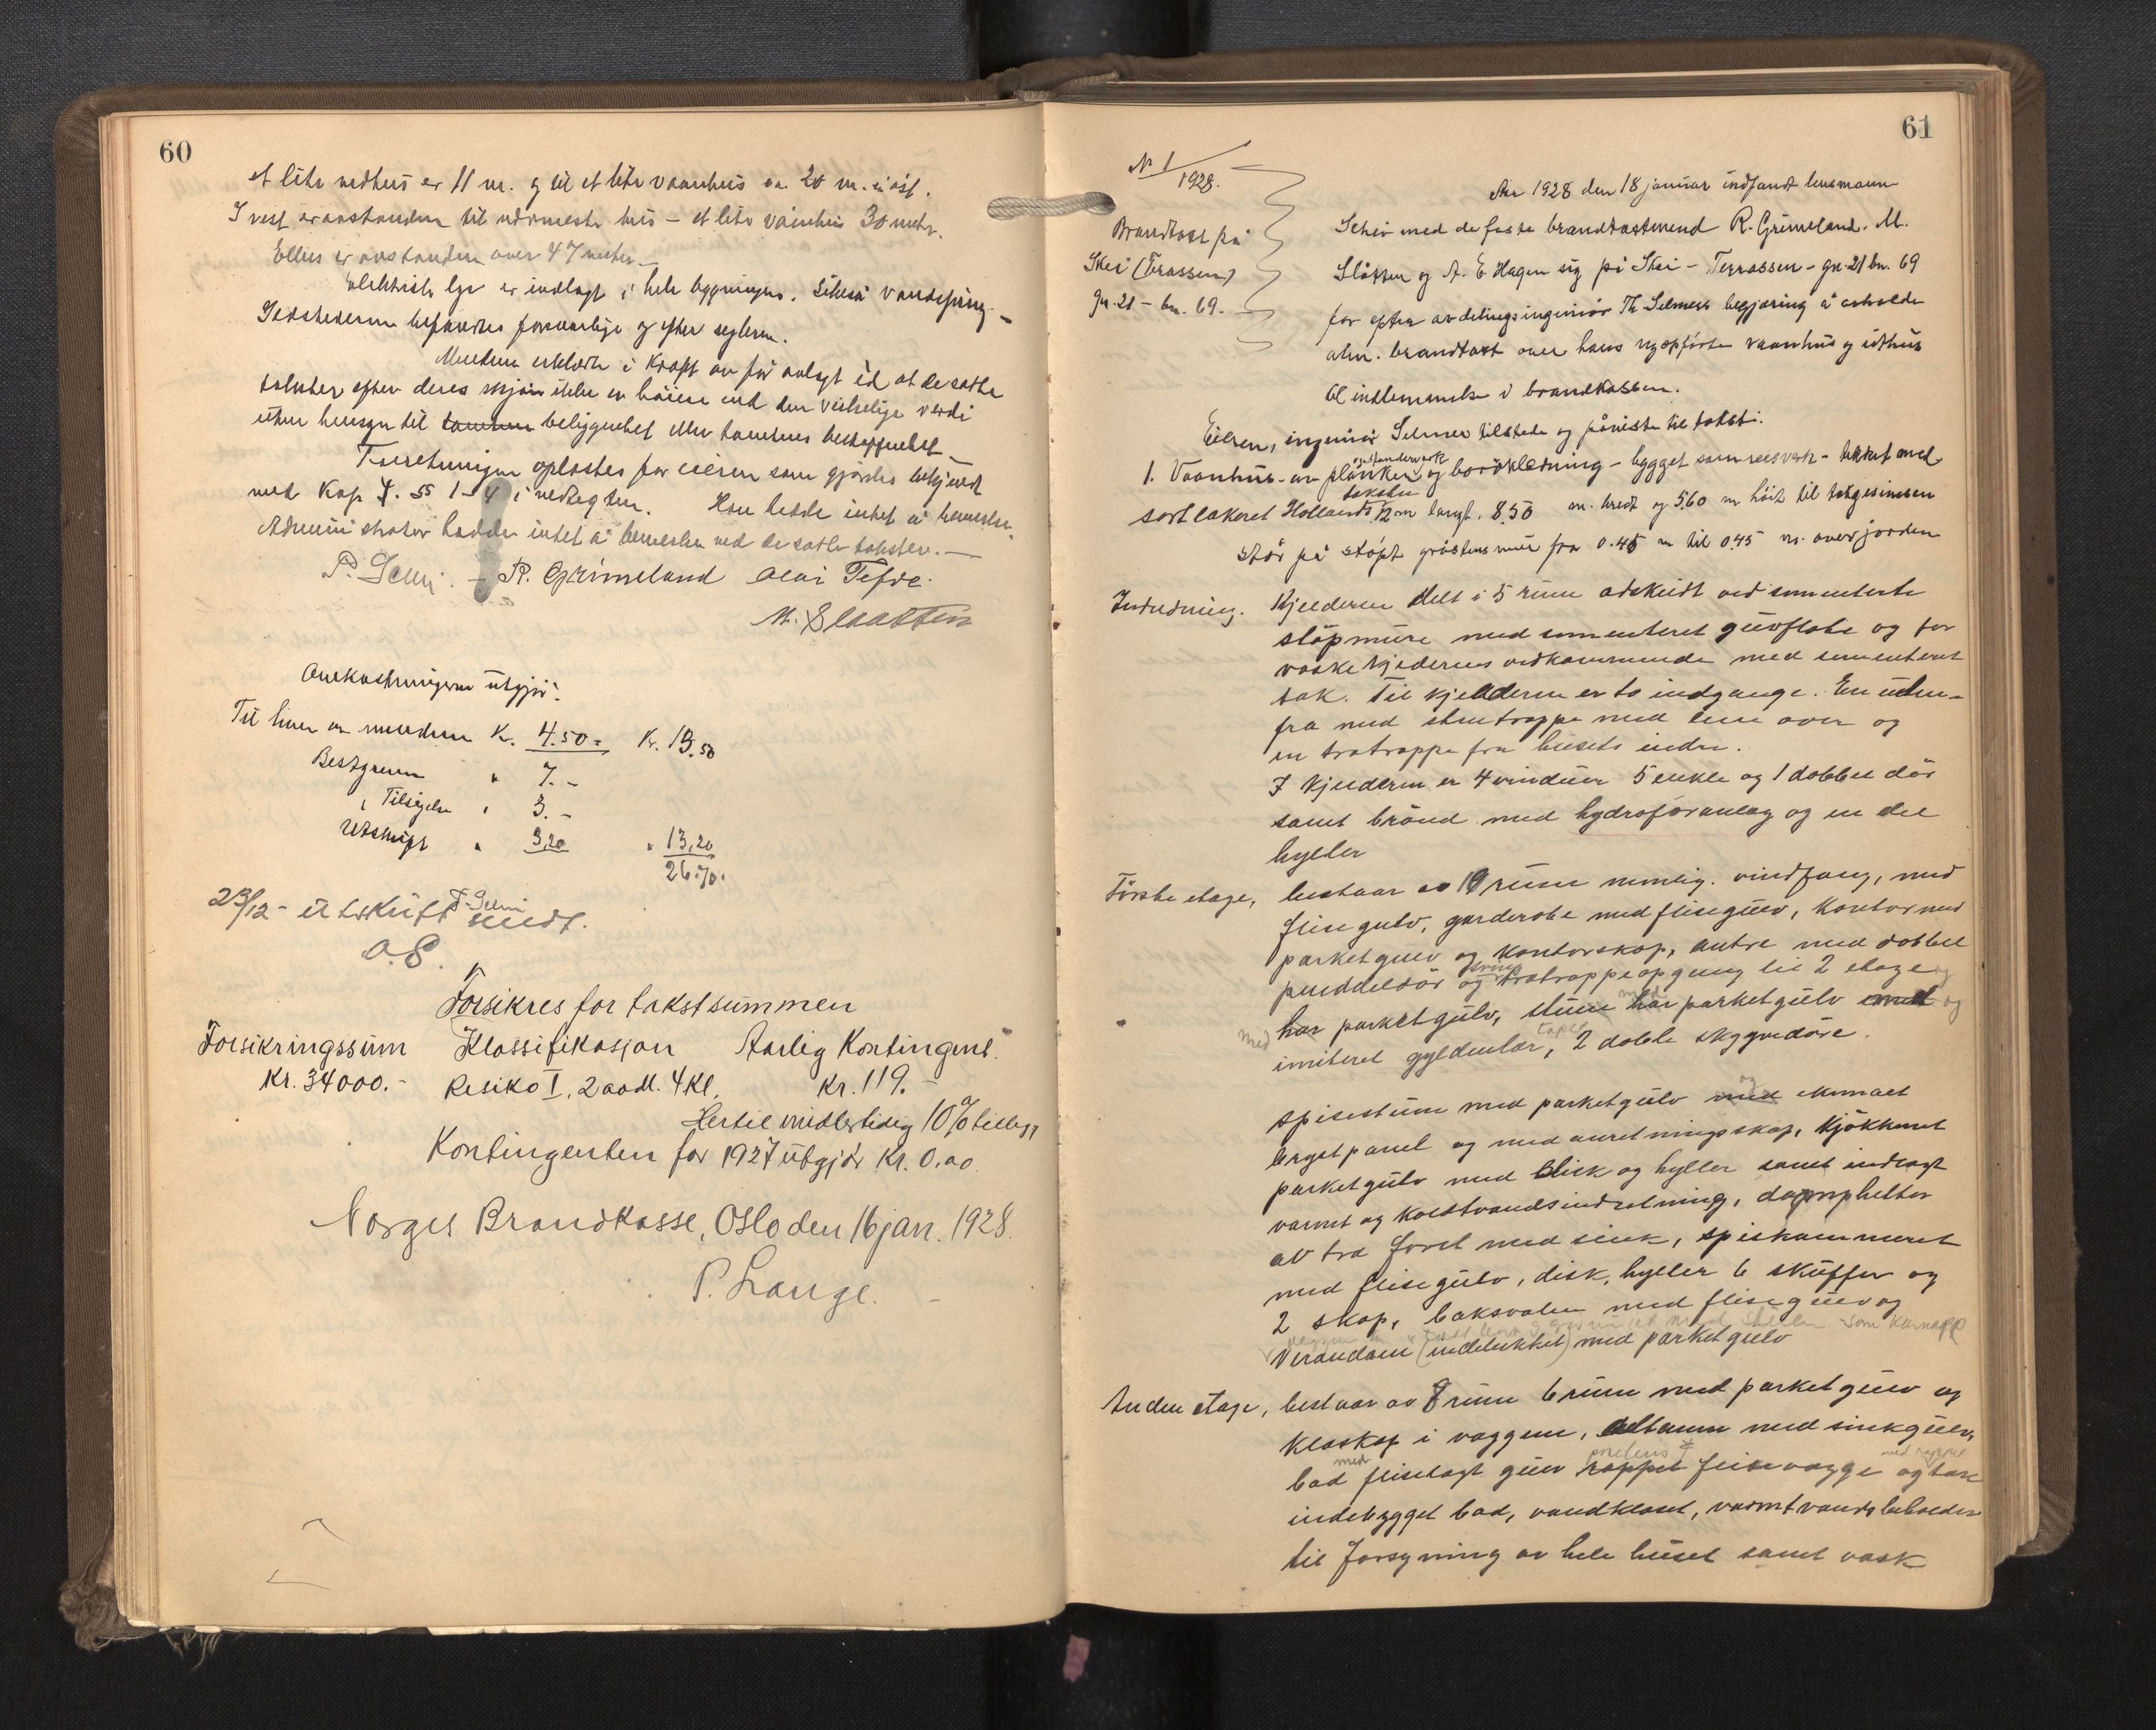 60
et lite vedhus er 11 m. og til et lite vaanhus ca. 20 m. i øst.
I vest er avstanden til nærmeste hus - et lite vånhus 30 meter.
Ellers er avstanden over 47 meter.
Elektrisk lys er indlagt i hele bygningen. Likeså vandspring.
Ildstederne befandtes forsvarlige og efter reglerne.
Mændene erklærte i kraft av før avlagt ed at de satte
takster efter deres skjøn ikke er høiere end den virkelige verdi
uten hensyn til tomtens beliggenhet eller tomtens beskaffenhet.
Forretningen oplæstes for eieren som gjordes bekjendt
med Kap 4. §§ 1-4 i vedtegten. Han hadde intet å bemerke.
Administrator hadde intet å bemerke ved de satte takster.
R. Grimeland Olai Tefre.
M. Slaatten
Omkostningerne utgjør:
Til hver av mændene Kr. 4.50 = Kr. 13.50
Bestyreren " 7.-
" Tilsigelse " 3.-
Utskrift " 3,20 " 13,20
26.70.
23/12 - utskrift sendt.
O.S.
Forsikres for takstsummen
Forsikringssum Klassifikasjon Aarlig Kontingent.
Kr. 34000.- Resiko I, 2 avdl. 4 Kl. Kr. 119.-
Hertil midlertidig 10% tillegg
Kontingenten for 1927 utgjør Kr. 0.00
Norges Brandkasse, Oslo den 16 jan. 1928.
P. Lange.
61
N 1/1928.
Brandtakst på
Skei (Terassen)
gn. 21 - bn. 69.
Aar 1928 den 18 januar indfandt lensmann
Schei med de faste brandtakstmend R. Grimeland, M.
Slåtten og A. E. Hagen sig på Skei - Terrassen - gn. 21 bn. 69
for efter avdelingsingeniør Th. Selmers begjæring å avholde
alm. brandtakst over hans nyopførte vaanhus og uthus
til indlemmelse i brandkassen.
Eieren, ingeniør Selmer tilstede og påviste til takst:
1. Vaanhus - av planker og bordklædning - bygget som reisverk - tekket med
sort lakeret Hollandsk taksten 12 m langt, 8.50 m. bredt og 5.60 m høit til takgesimsen
står på støpt gråstensmur fra 0.45 m til 0.45 m. over jorden
Indredning. Kjelderen delt i 5 rum adskildt ved sementerte
støpmure med sementeret gulvflate og for
vaskekjelderens vedkommende med sementeret
tak. Til kjelderen er to indgange. En uten-
fra med stentrappe med lem over og
en tretrappe fra husets indre.
I kjelderen er 4 vinduer 5 enkle og 1 dobbel dør
samt brønd med hydroforanlæg og en del
hyller
Første etage, bestaar av 10 rum nemlig. vindfang, med
flisegulv, garderobe med flisegulv, kontor med
parketgulv og kontorskap, entre med dobbel
pendeldør og tretrappeopgang til 2 etage og
har parketgulv, stuen med har parketgulv med og
imiteret gyldenlær tapet, 2 doble skyvedøre.
spisestuen med parketgulv med og ekmalet
brystpanel og med anretningsskap, kjøkkenet
parketgulv med disk og hyller samt indlagt
varmt og koldtvandsindretning, damphetter
av tre foret med sink, spiskammeret
med flisegulv, disk, hyller 6 skuffer og
2 skap, baksvalen med flisegulv og
som karnapp
Verandaen (indelukket) med parketgulv
Anden etage, bestaar av 8 rum 6 rum med parketgulv og
kleskap i væggene, altanen med sinkgulv,
bad med fliselagt gulv rappet flisevægge og tak
indebygget bad, vandkloset, varmtvandsbeholder
til forsyning av hele huset samt vask